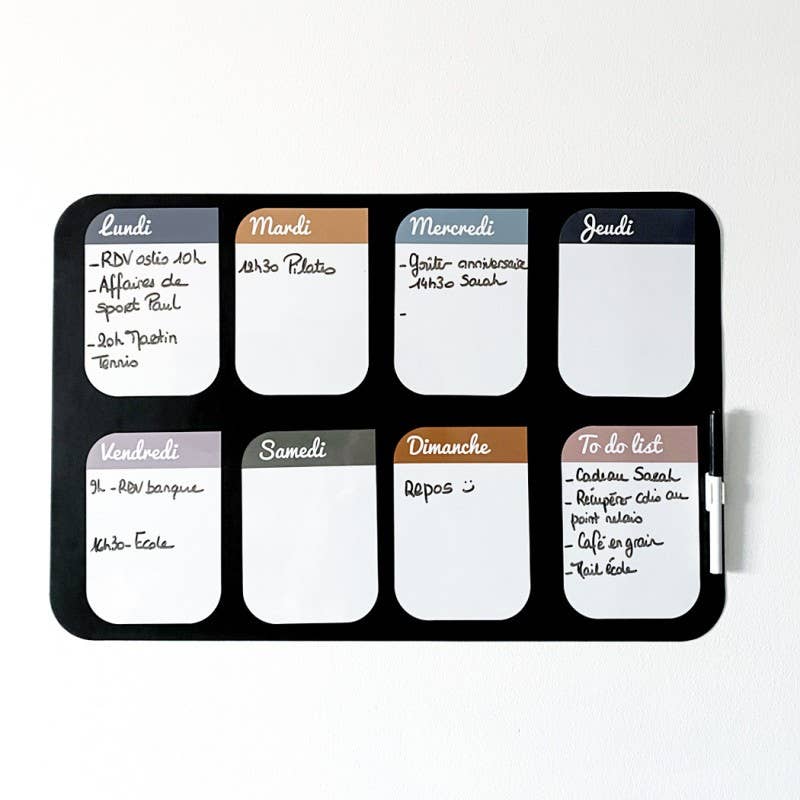 Lundi
-RDV ostio 10h
-Affaires de
sport Paul
-20h Martin
Tennis
Mardi
12h30 Pilates
Mercredi
-Goûter anniversaire
14h30 Sarah
-
Jeudi
Vendredi
9h -RDV banque
16h30-Ecole
Samedi
Dimanche
Repos :)
To do list
-Cadeau Sarah
-Récupérer colis au
point relais
-Café en grain
-Mail école